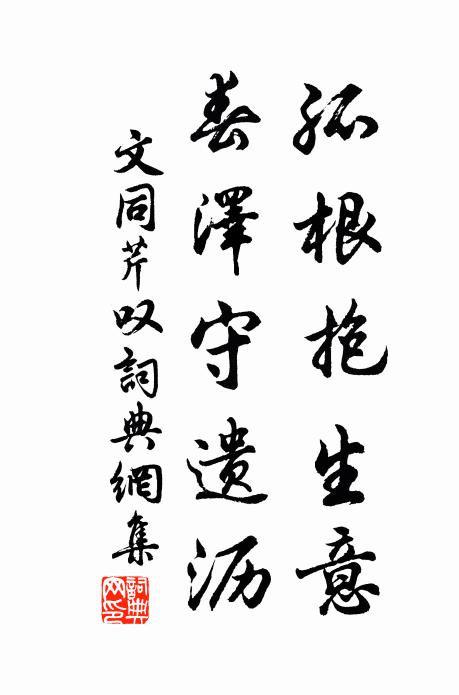 孤根抱生意
春澤守遺沥
文同芹叹詞典網集
詞典
网印